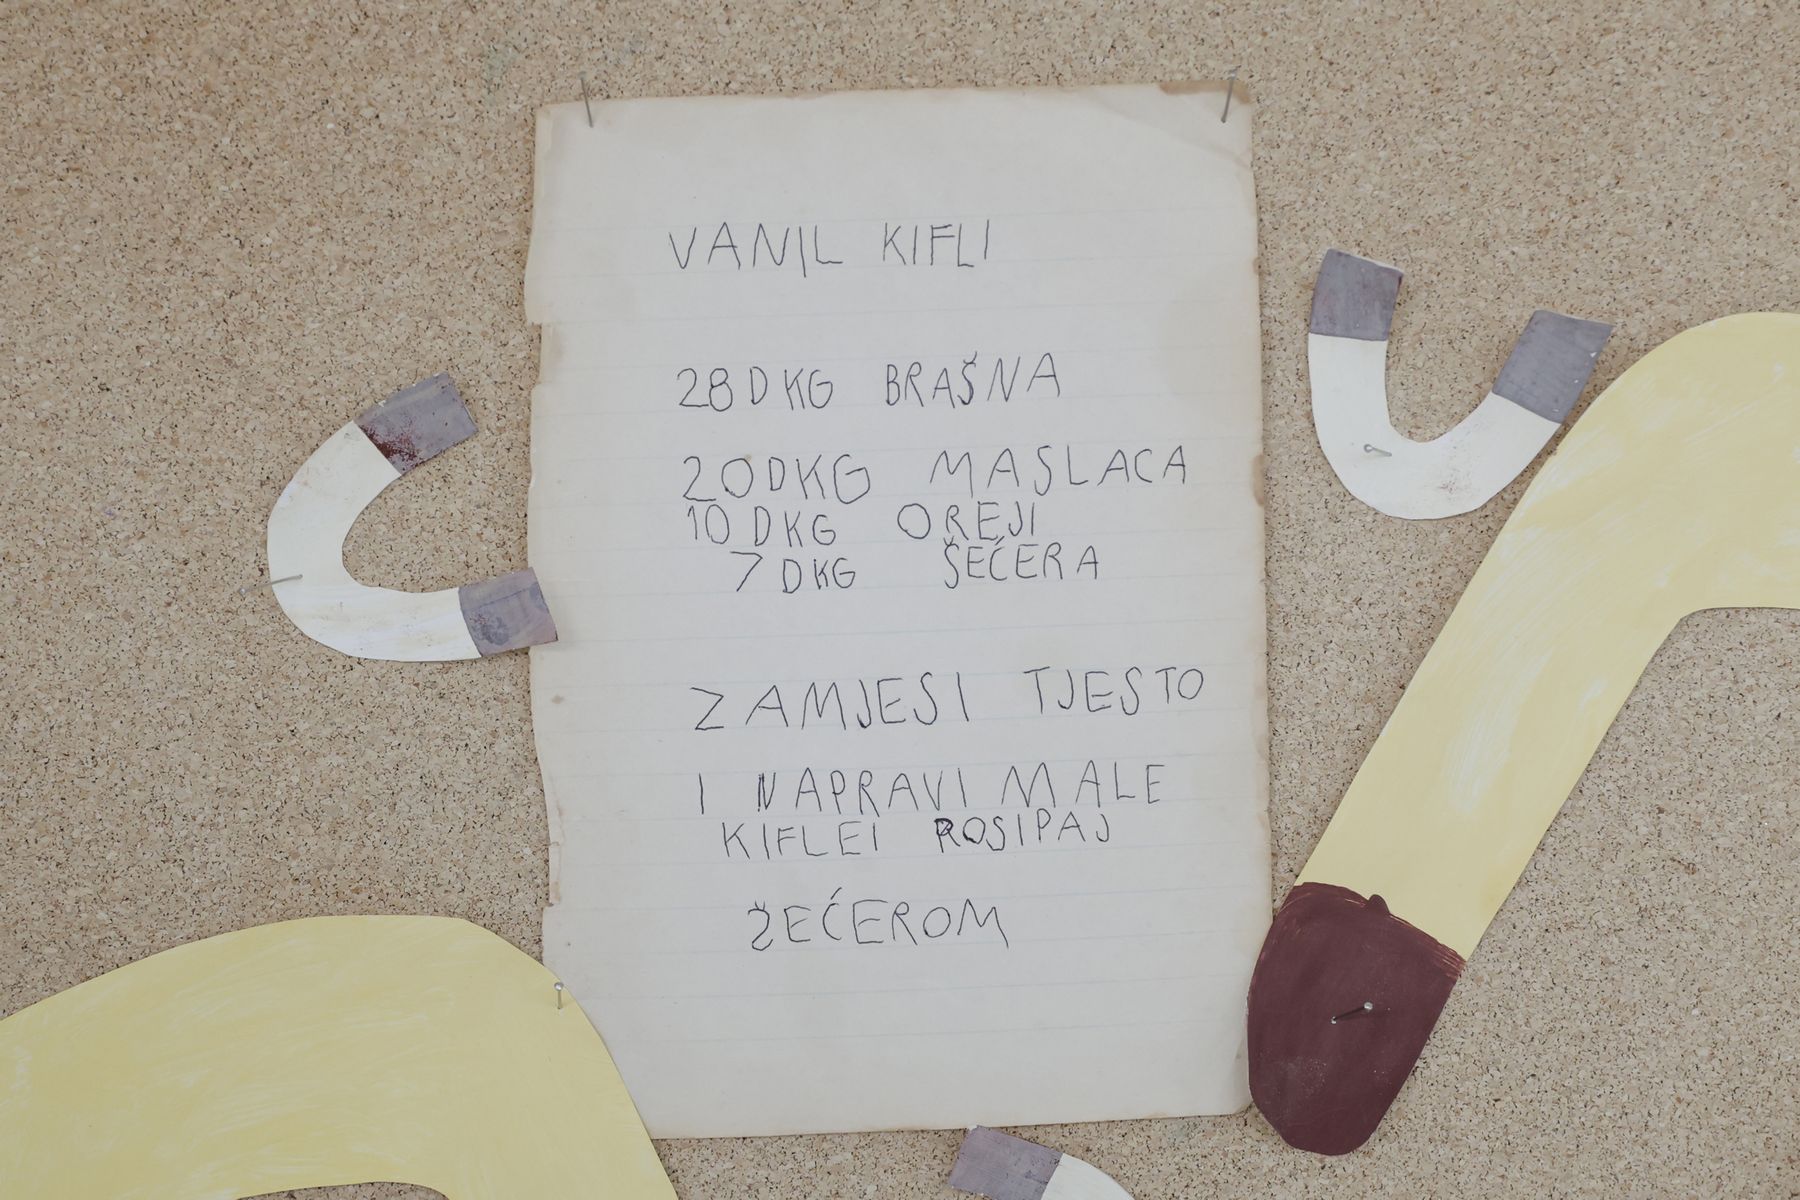 VANIL KIFLI
28DKG BRAŠNA
20DKG MASLACA
10DKG OREJI
7DKG ŠEĆERA
ZAMJESI TJESTO
I NAPRAVI MALE
KIFLEI ROSIPAJ
ŽEĆEROM